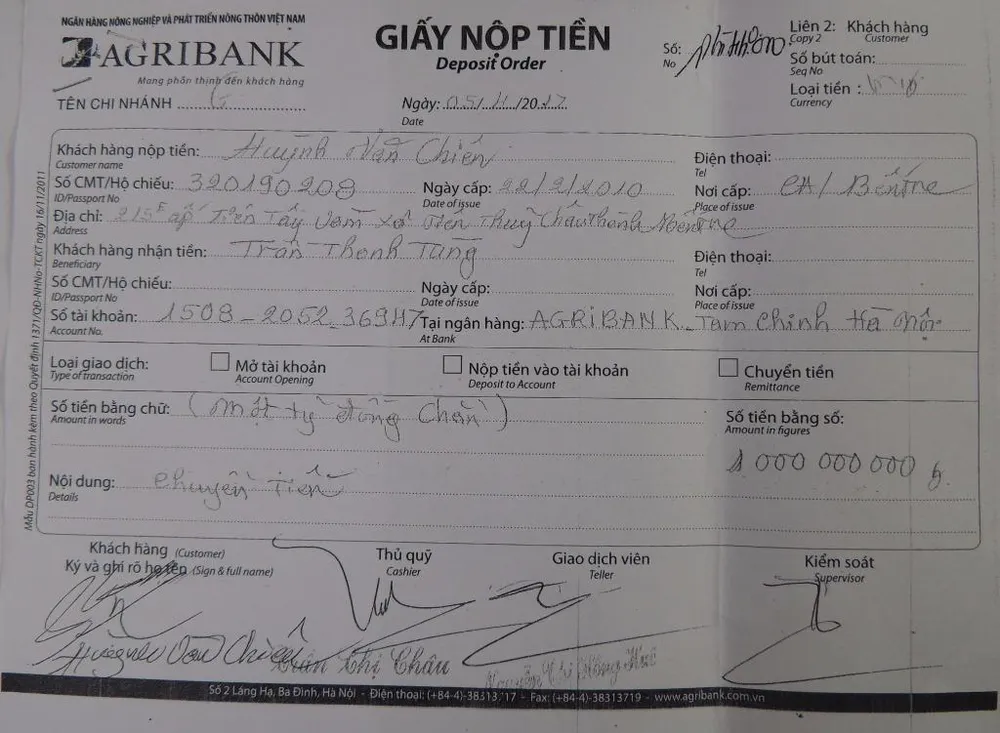 NGÂN HÀNG NÔNG NGHIỆP VÀ PHÁT TRIỂN NÔNG THÔN VIỆT NAM
AGRIBANK
Mang phồn thịnh đến khách hàng
TÊN CHI NHÁNH
GIẤY NỘP TIỀN
Deposit Order
Ngày: 05/11/2017
Date
Số:
No
Liên 2: Khách hàng
Copy 2 Customer
Số bút toán:
Seq No
Loại tiền :
Currency
Khách hàng nộp tiền: Huỳnh Văn Chiến
Customer name
Điện thoại:
Tel
Số CMT/Hộ chiếu: 320190208 Ngày cấp: 22/2/2010 Nơi cấp: CA/ Bến Tre
ID/Passport No Date of issue Place of issue
Địa chỉ: 215E ấp Tiên Tây Vàm xã Tiên Thuỷ Châu Thành Bến Tre
Address
Khách hàng nhận tiền: Trần Thanh Tùng
Beneficiary
Điện thoại:
Tel
Số CMT/Hộ chiếu: Ngày cấp: Nơi cấp:
ID/Passport No Date of issue Place of issue
Số tài khoản: 1508-2052.36947 Tại ngân hàng: AGRIBANK Tam Chinh Hà Nội
Account No. At Bank
Loại giao dịch: Mở tài khoản Nộp tiền vào tài khoản Chuyển tiền
Type of transaction Account Opening Deposit to Account Remittance
Số tiền bằng chữ: (một tỷ đồng chẵn)
Amount in words
Số tiền bằng số:
Amount in figures
1 000 000 000 đ.
Nội dung: Chuyển Tiền
Details
Khách hàng (Customer) Thủ quỹ Giao dịch viên Kiểm soát
Ký và ghi rõ họ tên (Sign & full name) Cashier Teller Supervisor
Huỳnh Văn Chiến Trần Thị Châu Nguyễn Thị Hồng Huế
Số 2 Láng Hạ, Ba Đình, Hà Nội - Điện thoại: (+84-4)-38313717 - Fax: (+84-4)-38313719 - www.agribank.com.vn
Mẫu DP003 ban hành kèm theo Quyết định 1371/QĐ-NHNo-TCKT ngày 16/11/2011